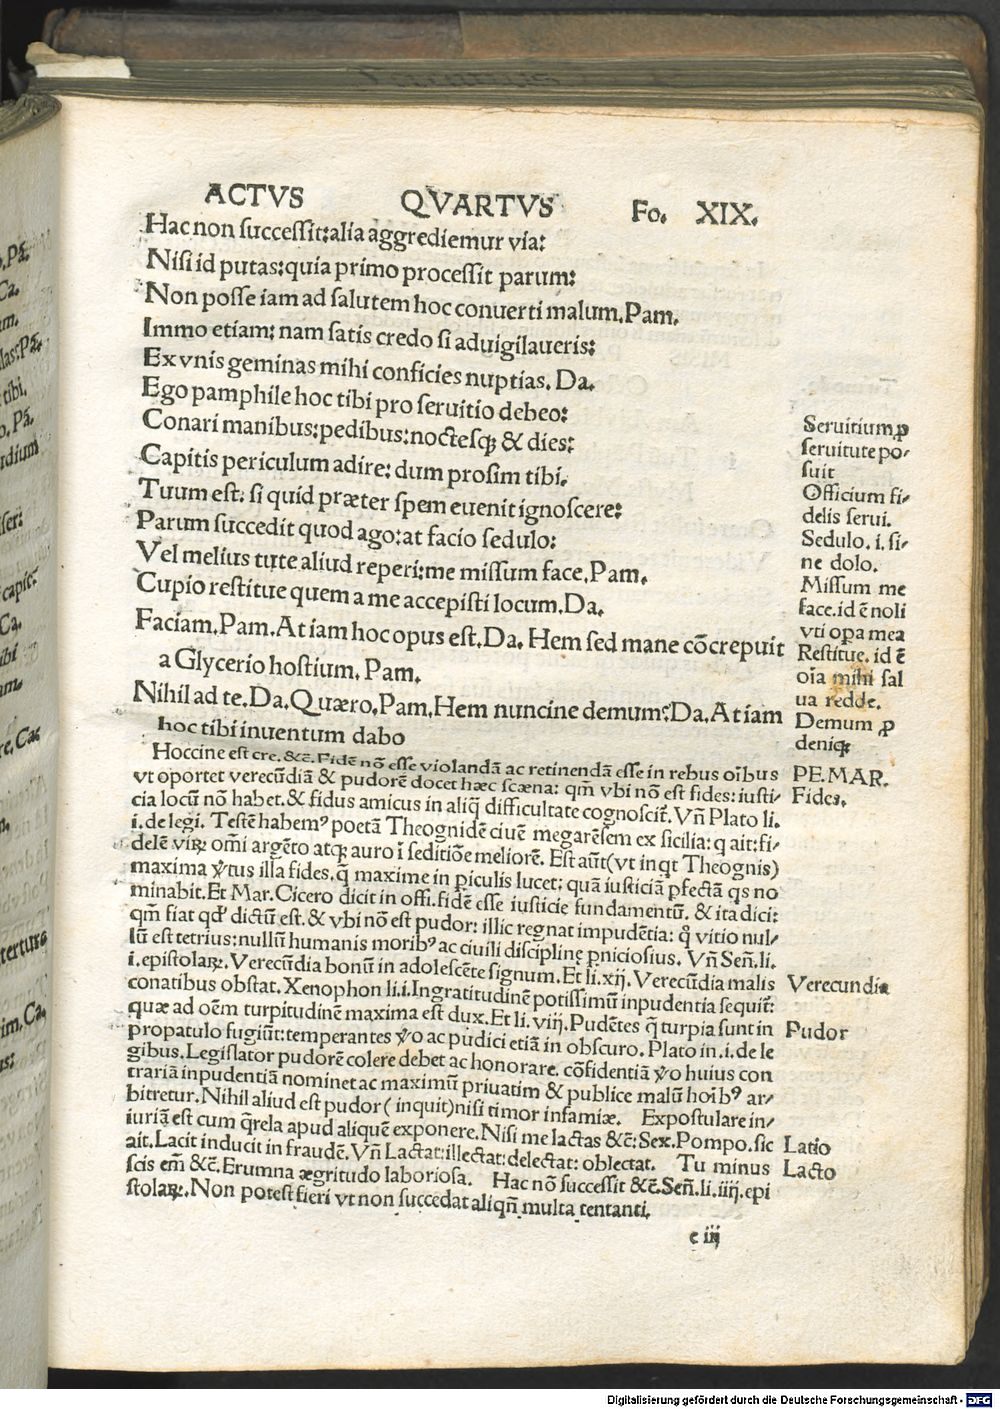 ACTVS QVARTVS Fo. XIX.
Hac non successit:alia aggrediemur via:
Nisi id putas:quia primo processit parum:
Non posse iam ad salutem hoc conuerti malum.Pam.
Immo etiam: nam satis credo si aduigilaueris:
Ex vnis geminas mihi conficies nuptias. Da.
Ego pamphile hoc tibi pro seruitio debeo:
Conari manibus:pedibus:noctesqꝫ & dies:
Capitis periculum adire: dum prosim tibi.
Tuum est: si quid præter spem euenit ignoscere:
Parum succedit quod ago:at facio sedulo:
Vel melius tute aliud reperi:me missum face.Pam.
Cupio restitue quem a me accepisti locum.Da.
Faciam.Pam.At iam hoc opus est.Da. Hem sed mane cōcrepuit
a Glycerio hostium. Pam.
Nihil ad te.Da.Quæro.Pam.Hem nuncine demum?Da.At iam
hoc tibi inuentum dabo
Seruitium ꝓ
seruitute po-
suit
Officium fi-
delis serui.
Sedulo. i. si-
ne dolo.
Missum me
face.id ē noli
vti oꝑa mea
Restitue. id ē
oīa mihi sal
ua redde.
Demum ꝓ
deniqꝫ
Hoccine est cre. &c̄. Fidē nō esse violandā ac retinendā esse in rebus oībus
vt oportet verecūdiā & pudorē docet hæc scæna: qm̄ vbi nō est fides: iusti-
cia locū nō habet.& fidus amicus in aliq̄ difficultate cognoscit̄. Vn̄ Plato li.
i. de legi. Testē habemꝰ poetā Theognidē ciuē megarēsem ex sicilia: q ait: fi-
delē viꝝ omī argēto atqꝫ auro ī seditiōe meliorē. Est aūt(vt inqt Theognis)
maxima v̄tus illa fides.q̄ maxime in ꝑiculis lucet: quā iusticiā ꝑfectā qs no
minabit.Et Mar.Cicero dicit in offi.fidē esse iusticie fundamentū. & ita dici:
qm̄ fiat qđ dictū est.& vbi nō est pudor: illic regnat impudētia: q̄ vitio nul-
lū est tetrius:nullū humanis moribꝰ ac ciuili disciplinę ꝑniciosius. Vn̄ Sen̄.li.
i.epistolaꝝ.Verecūdia bonū in adolescēte signum.Et li.xij.Verecūdia malis
conatibus obstat. Xenophon li.i.Ingratitudinē potissimū inpudentia sequit̄:
quæ ad oēm turpitudinē maxima est dux.Et li.viij.Pudētes q̄ turpia sunt in
propatulo fugiūt:temperantes v̄o ac pudici etiā in obscuro. Plato in.i.de le
gibus.Legislator pudorē colere debet ac honorare. cōfidentiā v̄o huius con
trariā inpudentiā nominet ac maximū priuatim & publice malū hoībꝰ ar-
bitretur.Nihil aliud est pudor(inquit)nisi timor infamiæ. Expostulare in-
iuriā est cum q̄rela apud aliquē exponere.Nisi me lactas &c̄: Sex.Pompo.sic
ait.Lacit inducit in fraudē.Vn̄ Lactat:illectat:delectat: oblectat. Tu minus
scis em̄ &c̄.Erumna ægritudo laboriosa. Hac nō successit &c̄.Sen̄.li.iiij.epi
stolaꝝ.Non potest fieri vt non succedat aliqn̄ multa tentanti.
PE.MAR.
Fides.
Verecundia
Pudor
Latio
Lacto
c iij
Digitalisierung gefördert durch die Deutsche Forschungsgemeinschaft - DFG